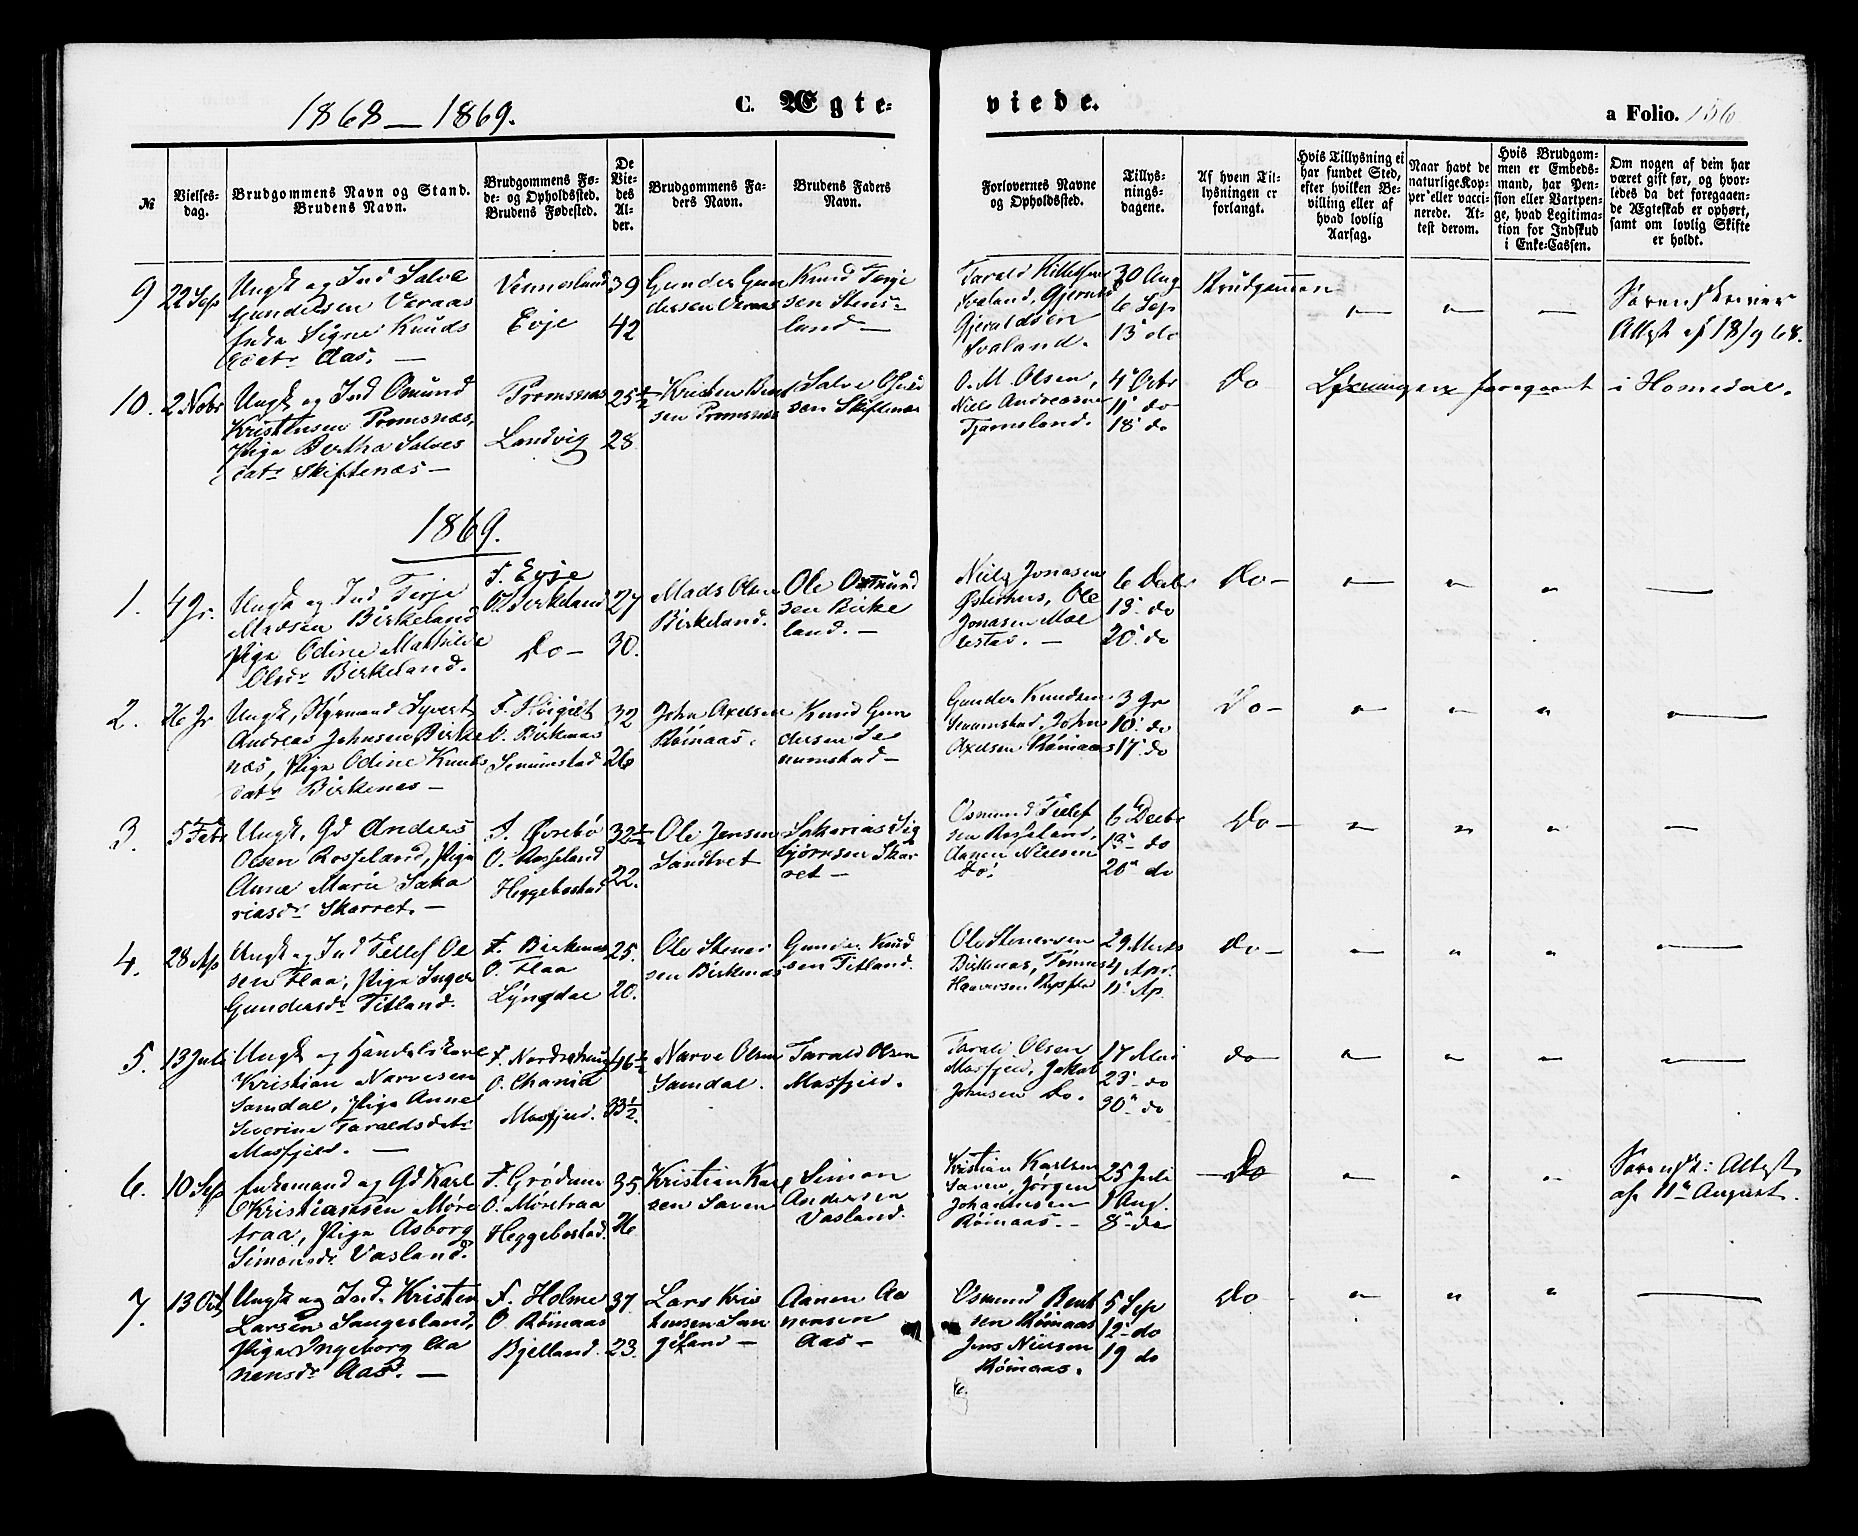 1868 — 1869.
C. Ægte-
viede.
a Folio. 156
№
Vielses-
dag.
Brudgommens Navn og Stand.
Brudens Navn.
Brudgommens Fø-
de- og Opholdssted.
Brudens Fødested.
De
Vie-
des
Al-
der.
Brudgommens Fa-
ders Navn.
Brudens Faders
Navn.
Forlovernes Navne
og Opholdssted.
Tillys-
nings-
dagene.
Af hvem Til-
lysningen er
forlangt.
Hvis Tillysning ei
har fundet Sted,
efter hvilken Be-
villing eller af
hvad lovlig
Aarsag.
Naar havt de
naturlige Kop-
per eller vacci-
nerede. At-
test derom.
Hvis Brudgom-
men er Embeds-
mand, har Pen-
sion eller Vartpen-
ge, hvad Legitima-
tion for Indskud
i Enke-Cassen.
Om nogen af dem har
været gift før, og hvor-
ledes da det foregaaen-
de Ægteskab er ophørt,
samt om lovlig Skifte
er holdt.
9
22 Sep
Ungk og Ind Salve
Gundersen Veraas
Signe Knuds
datr Aas. —
Vennesland
Evje
39
42
Gunder Gun
dersen Veraas
Knud Terje
sen Stens-
land —
Tarald Kittelsen
Svaland, Gjeruld
Gjeruldsen
Svaland.
30 Aug
6 Sep
13 do
Brudgommen
Sorenskriver
Attest af 18/9 68.
10.
2 Nobr
Ungk og Ind Osmund
Kristensen Promsnæs,
Pige Bertha Salves
datr Skiftenæs —
Promsnæs
Landvig
25½
28
Kristen Bent
sen Promsnæs
Salve
sen Skiftenæs
O. M. Olsen,
Niels Andreasen
Tjømsland.
4 Octbr
11 do
18 do
Do
Lysningen foregaaet i Homedal.
1869.
1.
4 Jr.
Ungk og Ind Terje
Madsen Birkeland
Pige Odine Mathilde
Olsdr Birkeland.
F. Evje
O. Birkeland
Do —
27
30.
Mads Olsen
Birkeland.
Ole Osmund
sen Birke
land. —
Niels Jonasen
Østerhus, Ole
Jonasen Mol
lestad. —
6 Decbr
13 do
20 do
Do —
2.
26 Jr
Ungk, Styrmand Syvert
Andreas Johnsen Birke
næs, Pige Odine Knuds
datr Birkenes —
F. Høigilt
O. Birkenæs
Senumstad
32
26
John Axelsen
Rømaas.
Knud Gun
dersen Se
numstad —
Gunder Knudsen
Senumstad, John
Axelsen Rømaas
3 Jr
10 do
17 do
Do —
3.
5 Febr
Ungk. Gd Anders
Olsen Rosseland, Pige
Anne Marie Saka
riasdr Skarret. —
F. Øvrebø
O. Rosseland
Heggebostad
32½
22.
Ole Jensen
Sandvet
Sakarias Sig
bjørnsen Skar
ret —
Osmund Tellef
sen Rosseland,
Aanen Nielsen
Do.
6 Decbr
13 do
20 do
Do —
4.
28 Ap
Ungk og Ind Tellef Ol
sen Flaa, Pige Inger
Gundersdr Titland.
F. Birkenes
O. Flaa
Lyngdal
25.
20.
Ole Stener
sen Birkenæs
Gunder Knud
sen Titland.
Ole Stenersen
Birkenæs, Tønnes
29 Marts
4 Apr.
11 Ap.
Do —
5.
13 Juli
Ungk og Handelskarl
Kristian Narvesen
Samdal, Pige Anne
Severine Taraldsdatr
Mosfjeld. —
Mosfjeld.
46½
33½
Narve Olsen
Samdal.
Tarald Olsen
Mosfjeld.
Tarald Olsen
Mosfjeld, Jakob
Johnsen Do.
17 Mai
23 do
30 do
Do —
6.
10 Sep
Enkemand og Gd Karl
Kristiansen Møre
traa, Pige Asborg
Simonsdr Vasland.
F. Grødum
O. Møretraa
Heggebostad.
35.
26
Kristian Karl
sen Saven
Simon
Andersen
Vasland.
Kristian Karlsen
Saven, Jørgen
Johannesen
Rømaas. —
25 Juli
1 Aug.
8 do
Do
Sorensk: Attest
af 11te August.
7.
13 Oct
Ungk og Ind. Kristen
Larsen Sangesland,
Pige Ingeborg Aa
nensdr Aas. —
F. Holme
O. Rømaas
Bjelland.
37
23.
Lars Kris
tensen San
gesland —
Aanen Aa
nensen
Aas —
Osmund Bent
sen Rømaas
Jens Nielsen
Rømaas.
5 Sep
12 do
19 do
Do